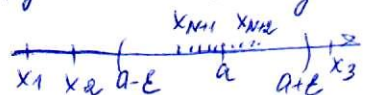 x_{N+1} x_{N+2}
x_1 x_2 a-ε a a+ε x_3